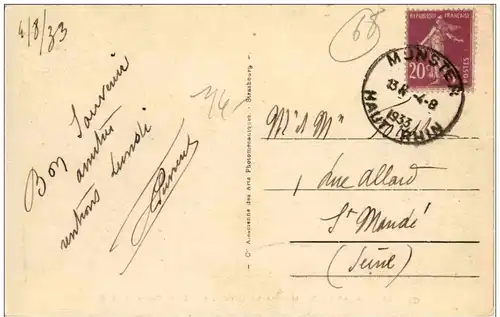 4/8/33
Bon Souvenir
amitiés
rentrons lundi
68
RÉPUBLIQUE FRANÇAISE
20c
POSTES
MUNSTER
13H 4-8
1933
HAUT-RHIN
Cie Alsacienne des Arts Photomécaniques - Strasbourg
Mr & Mme
rue Allard
St Mandé
(Seine)